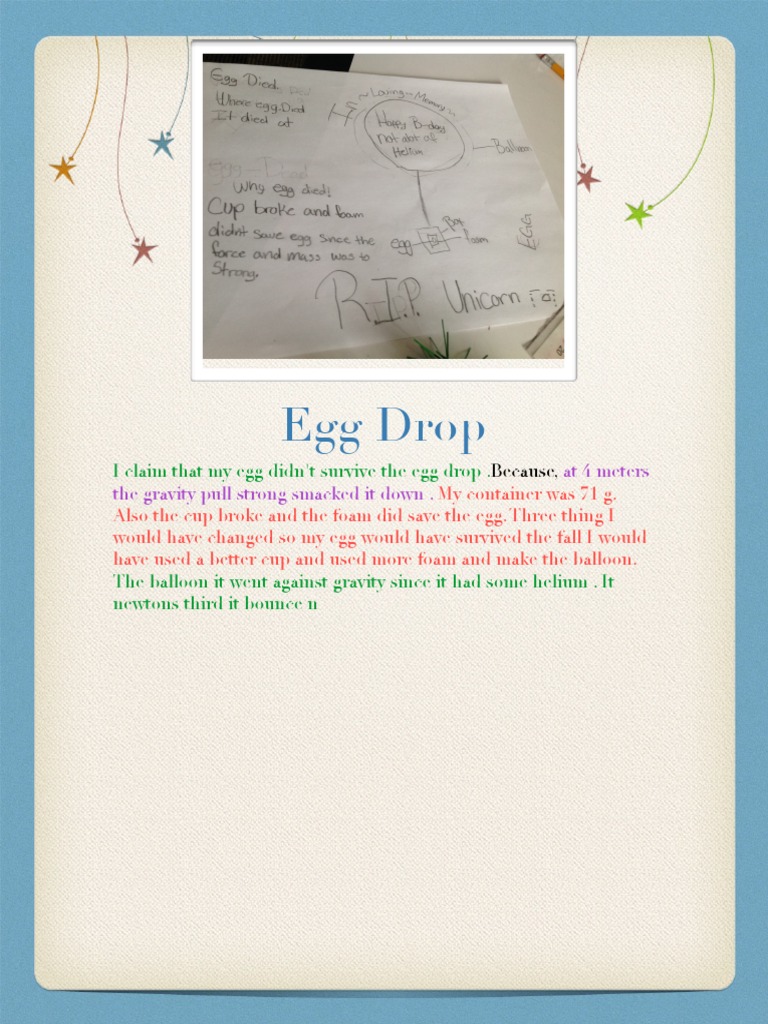 Egg Died
Where egg Died
It died at
In
~ Loving ~ Memory ~
Happy B-day
not alot of
Helium
Balloon
Egg Died
Why egg died!
Cup broke and foam
didnt save egg since the
force and mass was to
Strong.
Box
foam
egg
EGG
R.I.P. Unicorn
Egg Drop
I claim that my egg didn't survive the egg drop .Because, at 4 meters
the gravity pull strong smacked it down . My container was 71 g.
Also the cup broke and the foam did save the egg.Three thing I
would have changed so my egg would have survived the fall I would
have used a better cup and used more foam and make the balloon.
The balloon it went against gravity since it had some helium . It
newtons third it bounce n